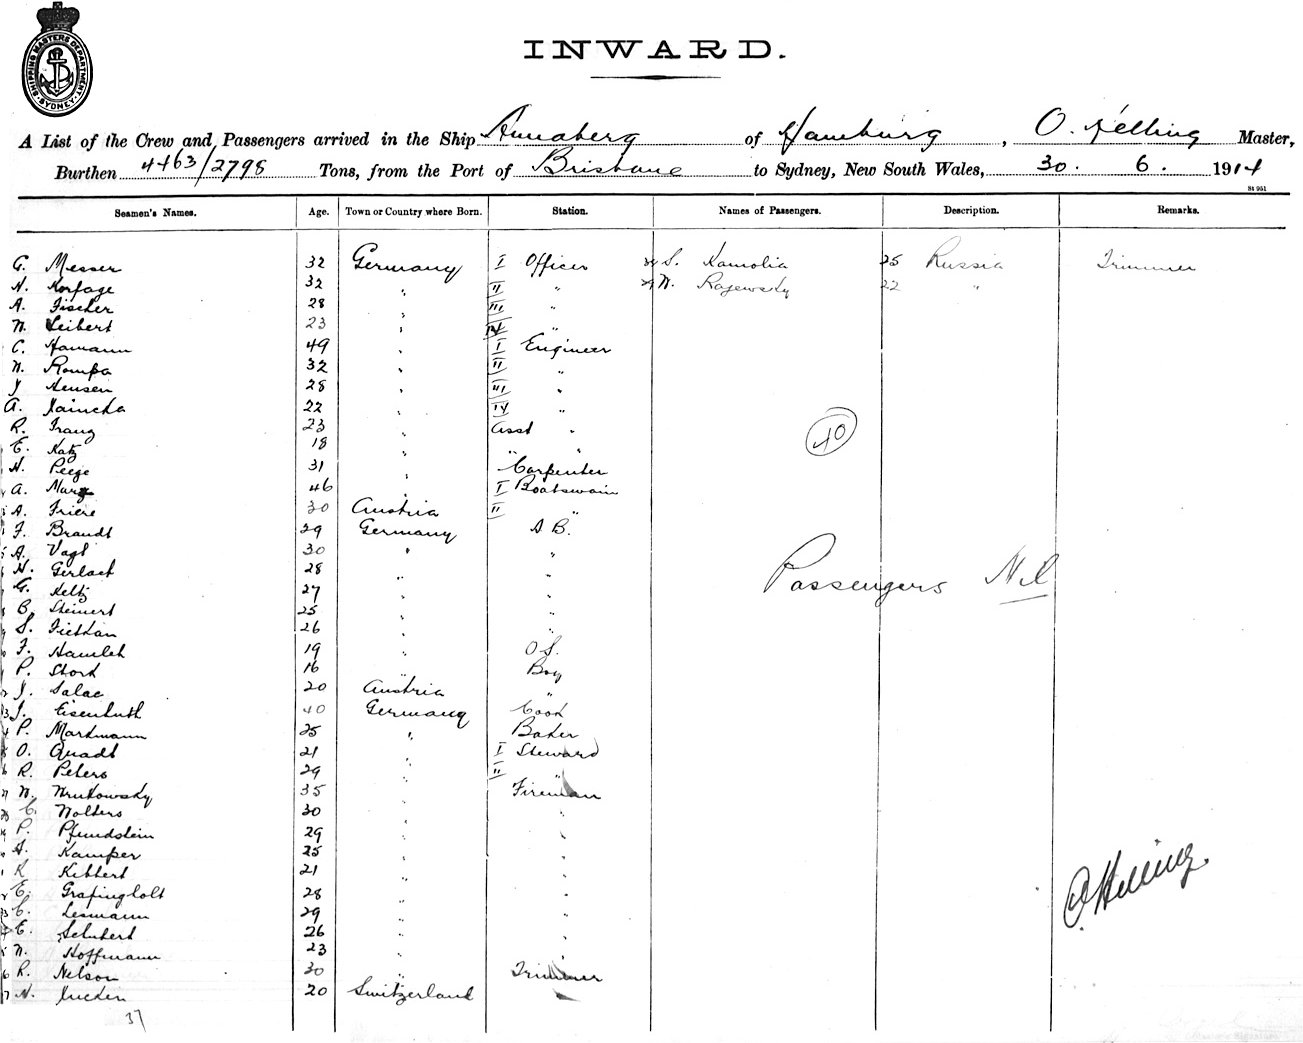 SHIPPING MASTERS DEPARTMENT
SYDNEY
INWARD.
A List of the Crew and Passengers arrived in the Ship Annaberg of Hamburg, O. Helling Master,
Burthen 4463/2798 Tons, from the Port of Brisbane to Sydney, New South Wales, 30. 6. 1914
St 951
Seamen's Names. Age. Town or Country where Born. Station. Names of Passengers. Description. Remarks.
G. Messer 32 Germany I Officer 38 S. Kamolia 25 Russia Trimmer
H. Korfage 32 " II " 39 N. Rajewsky 22 "
A. Fischer 28 " III "
W. Seibert 23 " IV "
C. Hamann 49 " I Engineer
W. Rompa 32 " II "
J. Hensen 28 " III "
A. 22 " IV "
R. Franz 23 " Asst "
E. Katz 18 " " "
H. Peege 31 " Carpenter
A. Marx 46 " I Boatswain
A. Friere 30 Austria II "
F. Brandt 29 Germany A B.
A. Vagt 30 " "
H. Gerlach 28 " "
G. Keltz 27 " "
B. Steinert 25 " "
S. 26 " "
F. Hamleh 19 " O S.
P. Stork 16 " Boy
J. Salac 20 Austria "
J. Eisenhuth 40 Germany Cook
P. Markmann 25 " Baker
O. Quadt 21 " I Steward
R. Peters 29 " II "
W. Wrukowsky 35 " Fireman
C. Wolters 30 " "
P. Pfundstein 29 " "
A. Kamper 25 " "
K. Kibbert 21 " "
E. Grafinglolt 28 " "
C. Lesmann 29 " "
E. Schubert 26 " "
W. Hoffmann 23 " "
R. Nelson 30 " Trimmer
W. 20 Switzerland "
37
40
Passengers Nil
O Helling